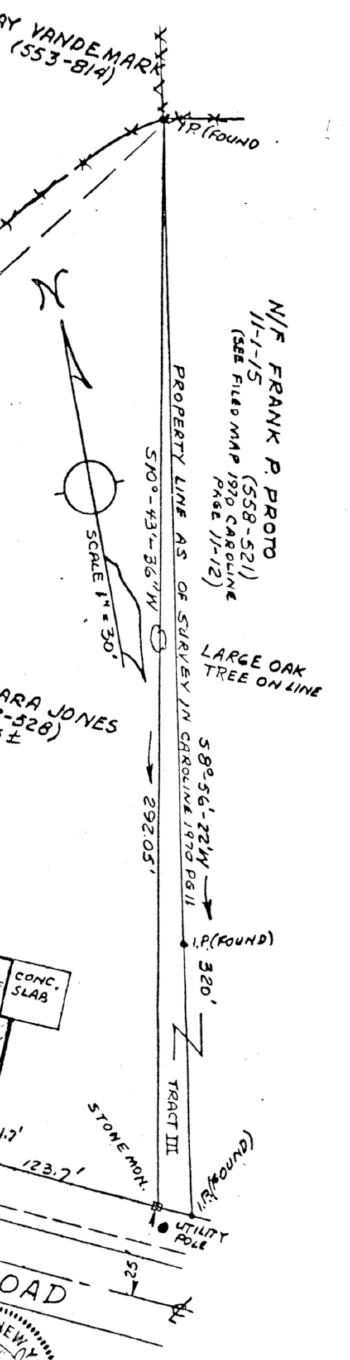 AY VANDEMARK
(553-814)
I.P.(FOUND
N/F FRANK P. PROTO
11-1-15 (558-521)
(SEE FILED MAP 1970 CAROLINE
PAGE 11-12)
N
SCALE 1" = 30'
PROPERTY LINE AS OF SURVEY IN CAROLINE 1970 PG 11
S10°-43'-36"W
292.05'
LARGE OAK
TREE ON LINE
ARA JONES
-528)
±
S8°-56'-22"W
320'
I.P.(FOUND)
CONC.
SLAB
TRACT III
STONE MON.
I.P.(FOUND)
.7'
123.7'
UTILITY
POLE
25'
OAD
NEW Y